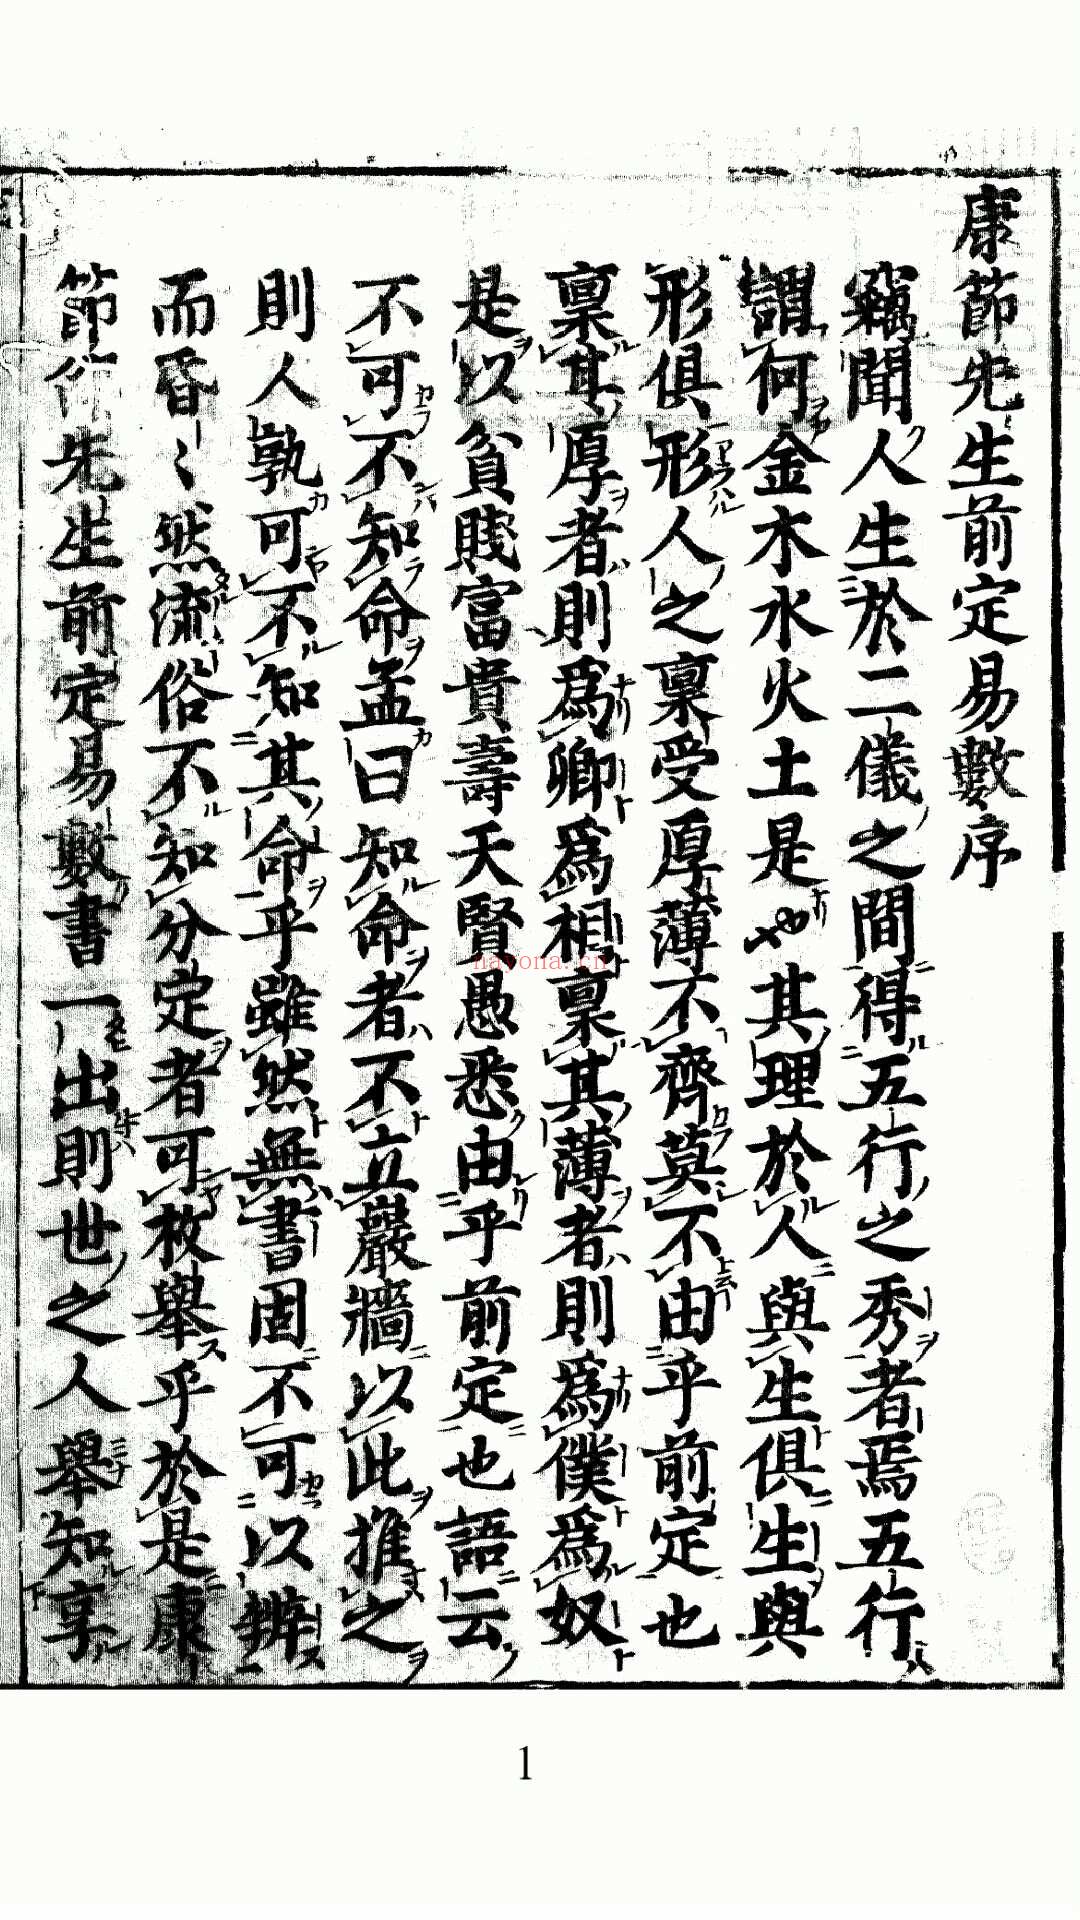 康節先生前定易數序
竊聞人生於二儀之間得五行之秀者焉五行
謂何金木水火土是也其理於人與生俱生與
形俱形人之稟受厚薄不齊莫不由乎前定也
稟其厚者則爲卿爲相稟其薄者則爲僕爲奴
是以貧賤富貴壽夭賢愚悉由乎前定也語云
不可不知命孟曰知命者不立巖牆以此推之
則人孰可不知其命乎雖然無書固不可以辨
而昏〻然流俗不知分定者可枚舉乎於是康
節邵先生前定易數書一出則世之人舉知享
hayona.cn
1